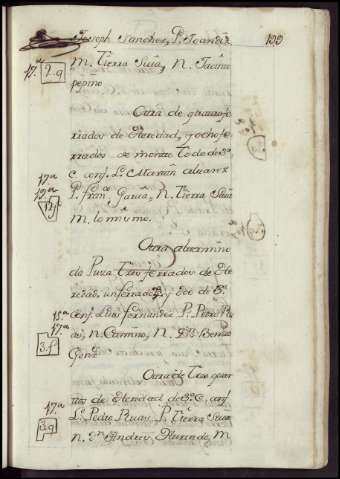 Joseph Sanchez, P. Joan de
199
17.ª 2.g M. Tierra Suia, N. Jacinto
pepino
Otra de quatro fe
rrados de Eredad, y ocho fe
rrados de monte Todo de 3.ª
17.ª C. conf. L. Martin alvarez
19.ª P. franco Garcia, N. Tierra Suia
M. lo mismo.
Otra al termino
da Puza Tres ferrados de Ere
redad, un ferrado y doz de 3.ª
15.ª conf. L. fernandez P. Pedro
17.ª N. Camino, N. Benito
3.f. Gonz
Otra de Tres quar
17.ª tos de Eredad de 3.ª C. conf
3.g L. Pedro Ruas, P. Tierra Suia
N. Dn Andres M